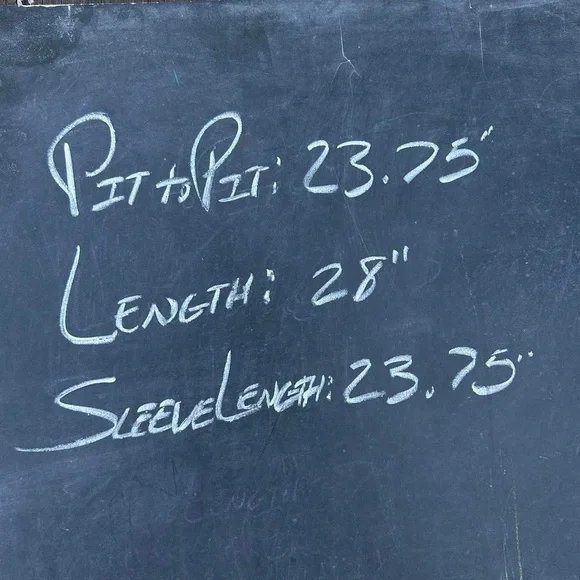 Pit to Pit: 23.75"
Length: 28"
Sleeve Length: 23.75"